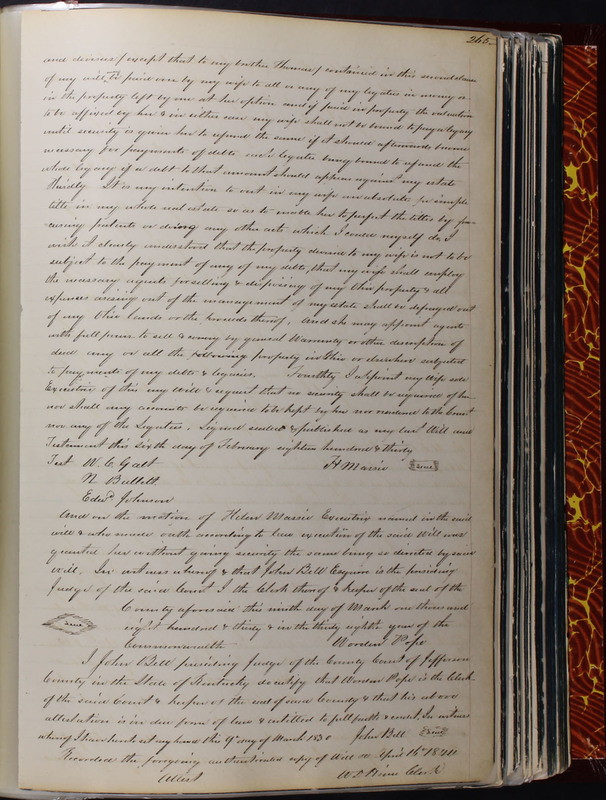 265
and devises (except that to my brother Thomas) contained in this second clause
of my will to be paid over by my wife to all or any of my legatees in money or
in the property left by me at her option and if paid in property the valuation
to be affixed by her & in either case my wife shall not be bound to pay a legacy
until security is given her to refund the same if it should afterwards become
necessary for payments of debts each legatee being bound to refund the
whole legacy if a debt to that amount should appear against my estate
Thirdly It is my intention to vest in my wife an absolute fee simple
title in my whole real estate so as to enable her to perfect the titles by pro-
curing patents or doing any other acts which I could myself do, I
wish it clearly understood that the property devised to my wife is not to be
subject to the payment of any of my debts, that my wife shall employ
the necessary agents for selling & disposing of my Ohio property & all
expenses arising out of the management of my estate shall be defrayed out
of my Ohio lands or the proceeds thereof, And she may appoint agents
with full power to sell & convey by general Warranty or other description of
deed any or all the following property in Ohio or elsewhere subjected
to payments of my debts & legacies. Fourthly I appoint my Wife sole
Executrix of this my Will & request that no security shall be required of her
nor shall any accounts be required to be kept by her nor rendered to the Court
nor any of the Legatees, Signed sealed & published as my last Will and
Testament this Sixth day of February eighteen hundred & thirty
Test W. C. Galt H Massie Seal
N Bullitt
Edwd Johnson
And on the motion of Helen Massie Executrix named in the said
will & who made oath according to law execution of the said Will was
granted her without giving security the same being so directed by said
will. In witness whereof & that John Bell Esquire is the presiding
Judge of the said Court I the Clerk thereof & keeper of the seal of the
County aforesaid this ninth day of March one thousand
Seal eight hundred & thirty & in the thirty eighth year of the
Commonwealth Worden Pope
I John Bell presiding Judge of the County Court of Jefferson
County in the State of Kentucky do certify that Worden Pope is the Clerk
of the said Court & keeper of the seal of said County & that his above
attestation is in due form of law & entitled to full faith & credit, In witness
whereof I have hereto set my hand this 9th day of March 1830 John Bell Seal
Recorded the foregoing authenticated copy of Will
Attest Clerk